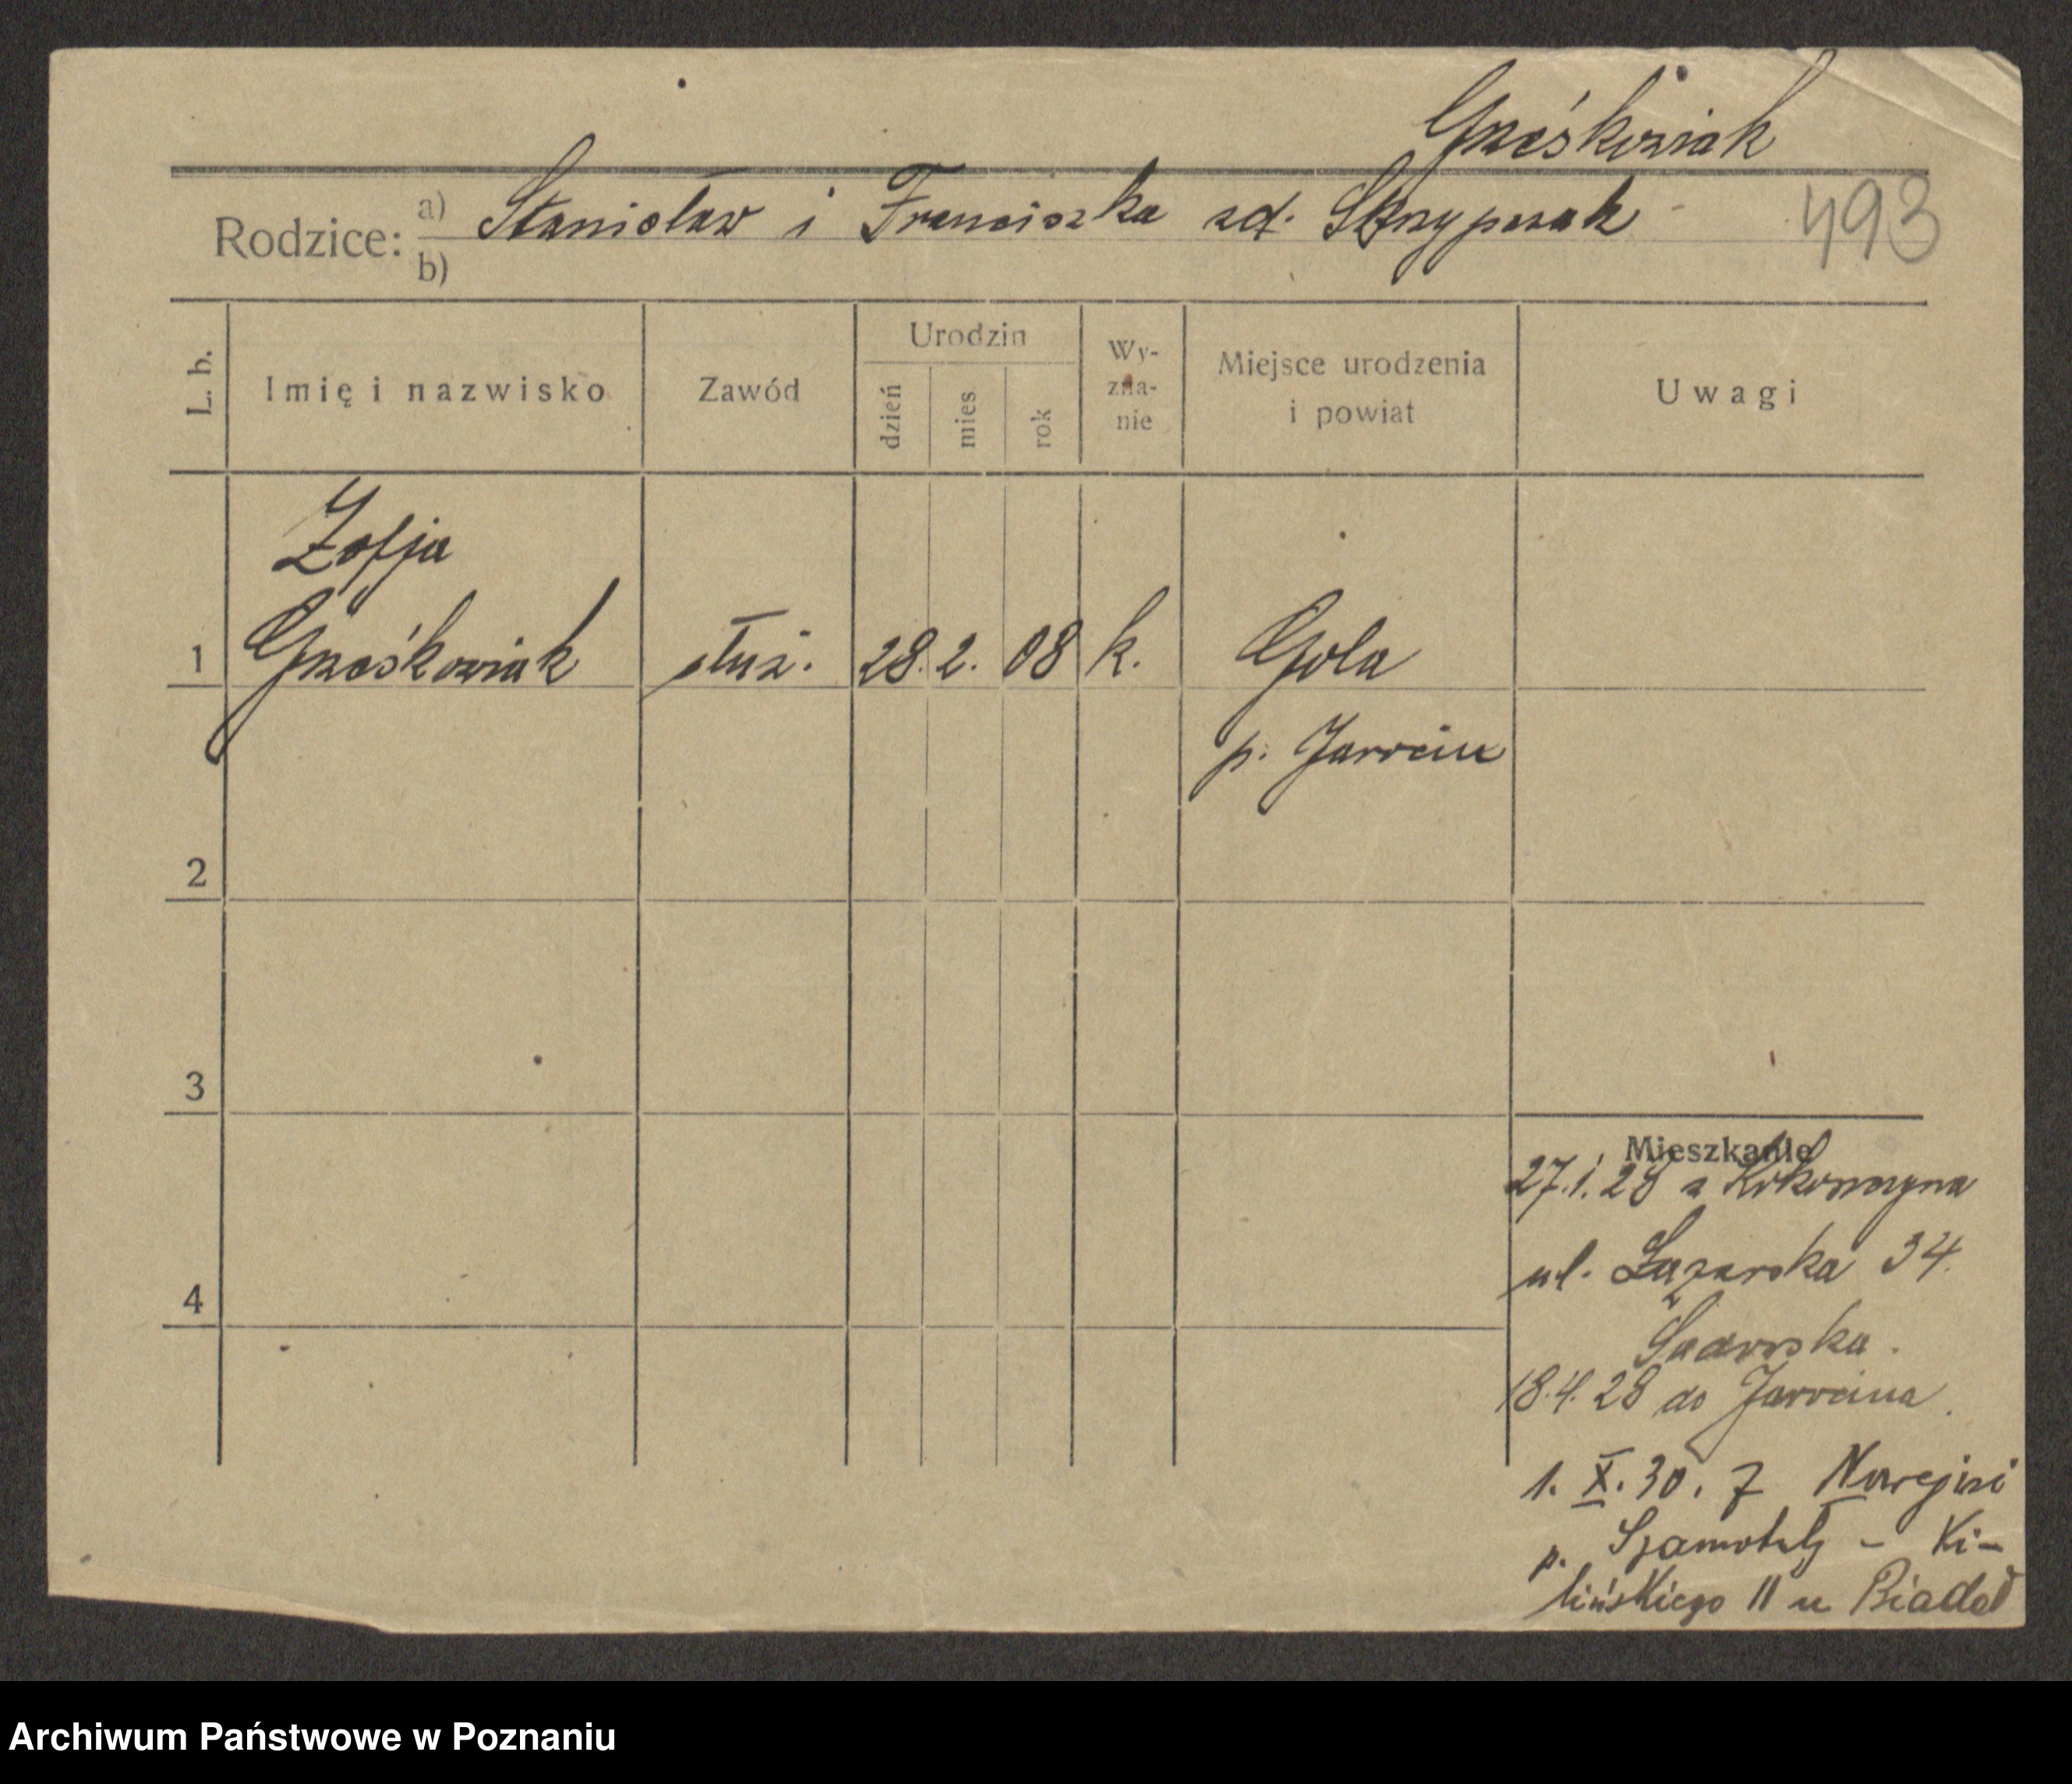 Grześkowiak
Rodzice: a) Stanisław i Franciszka zd. Skrzypczak
b)
493
L. b. Imię i nazwisko Zawód Urodzin dzień mies. rok Wy-zna-nie Miejsce urodzenia i powiat Uwagi
Zofja
1 Grześkowiak służ. 28. 2. 08 k. Gola
p. Jarocin
2
3
Mieszkanie
27.1.28 z Kokoszczyna
ul. Łazarska 34.
4
18.4.28 do Jarocina.
1. X. 30. Z
p. Szamotuły - Ki-
lińskiego 11 u
Archiwum Państwowe w Poznaniu